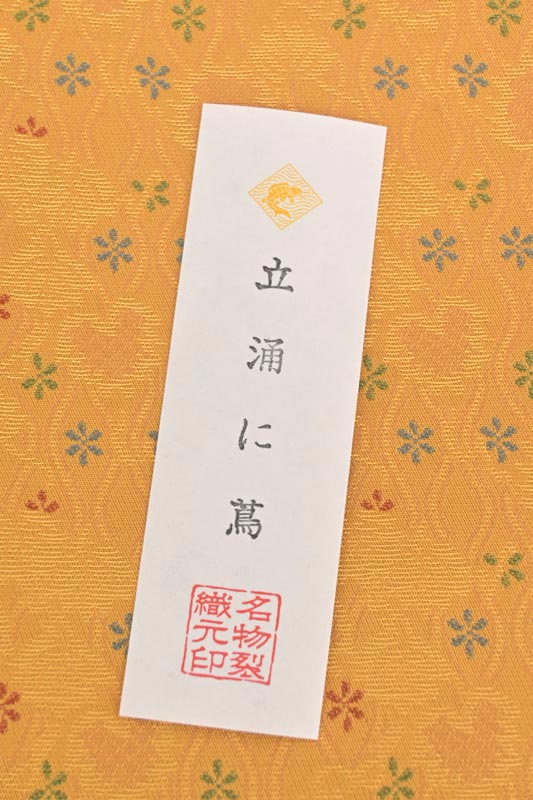 立涌に蔦
名物裂
織元印